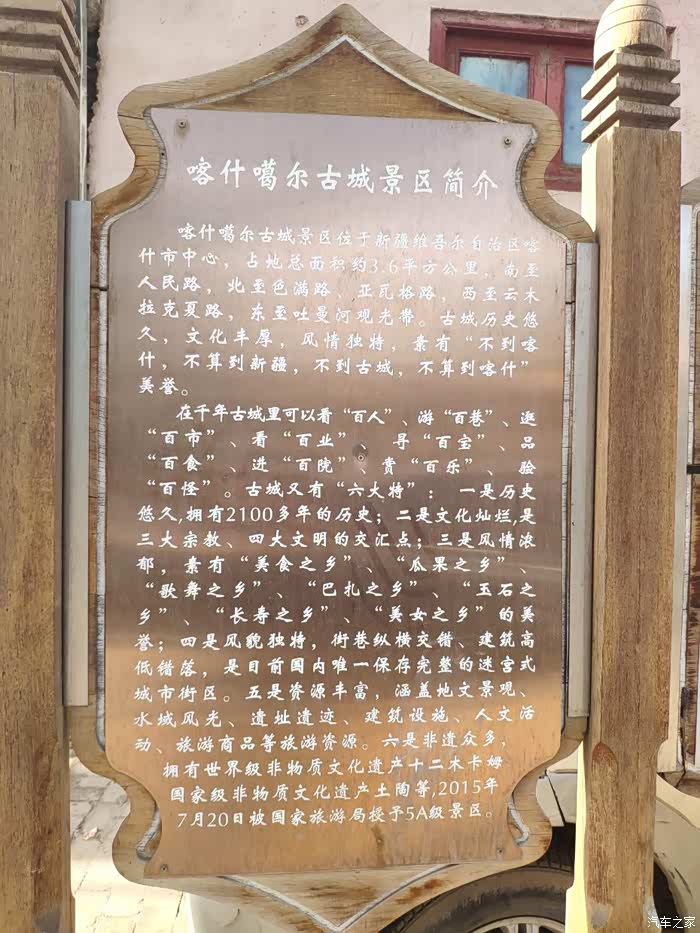 喀什噶尔古城景区简介
喀什噶尔古城景区位于新疆维吾尔自治区喀
什市中心，占地总面积约3.6平方公里，南至
人民路，北至色满路、亚瓦格路，西至云木
拉克夏路，东至吐曼河观光带。古城历史悠
久，文化丰厚，风情独特，素有“不到喀
什，不算到新疆，不到古城，不算到喀什”
美誉。
在千年古城里可以看“百人”、游“百巷”、逛
“百市”、看“百业”、寻“百宝”、品
“百食”、进“百院”、赏“百乐”、验
“百怪”。古城又有“六大特”：一是历史
悠久,拥有2100多年的历史；二是文化灿烂,是
三大宗教、四大文明的交汇点；三是风情浓
郁，素有“美食之乡”、“瓜果之乡”、
“歌舞之乡”、“巴扎之乡”、“玉石之
乡”、“长寿之乡”、“美女之乡”的美
誉；四是风貌独特，街巷纵横交错、建筑高
低错落，是目前国内唯一保存完整的迷宫式
城市街区。五是资源丰富，涵盖地文景观、
水域风光、遗址遗迹、建筑设施、人文活
动、旅游商品等旅游资源。六是非遗众多，
拥有世界级非物质文化遗产十二木卡姆
国家级非物质文化遗产土陶等,2015年
7月20日被国家旅游局授予5A级景区。
汽车之家